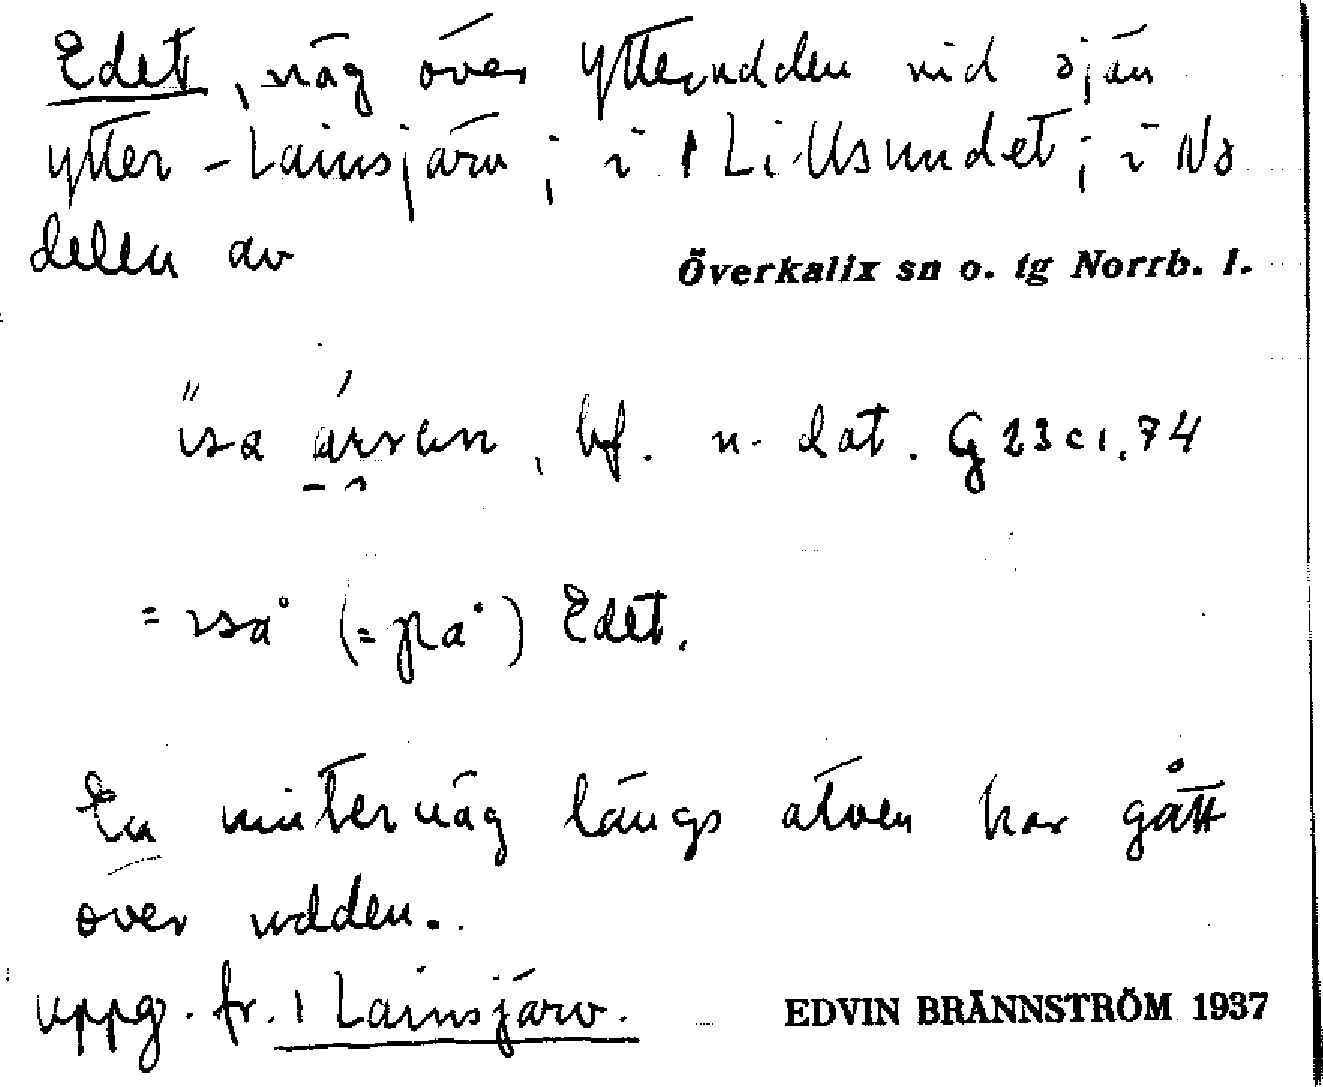 Edet, väg över Ytterudden vid sjön
Ytter-Lainsjärv; i 1 Lillsundet; i Nö
delen av Överkalix sn o. tg Norrb. l.
bf. n. dat. G 23 c 1, 74
= (= på) Edet.
En vinterväg längs älven har gått
över udden.
uppg. fr. 1 Lainsjärv. EDVIN BRÄNNSTRÖM 1937